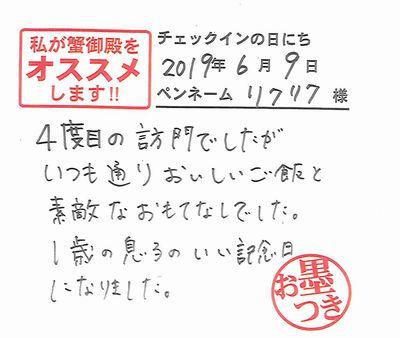 私が蟹御殿を
オススメ
します!!
チェックインの日にち
2019年 6月 9日
ペンネーム リフリフ 様
4度目の訪問でしたが
いつも通りおいしいご飯と
素敵なおもてなしでした。
1歳の息子のいい記念日
になりました。
お墨つき